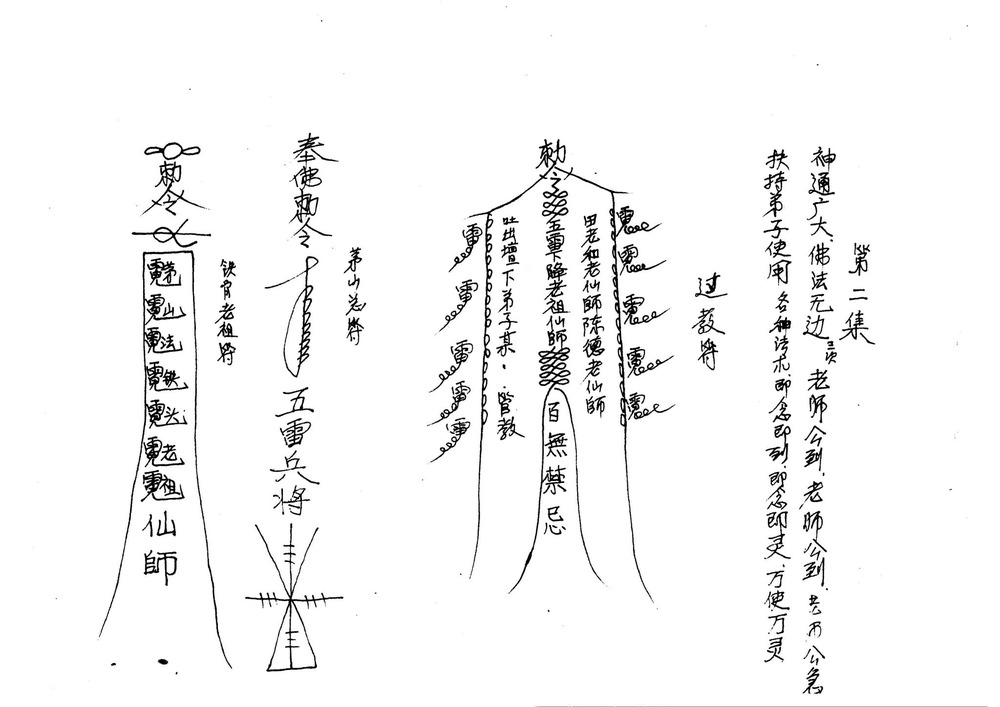 第二集
神通广大、佛法无边 三次 老师公到、老师公到、老币公急
扶持弟子使用 各种法术、即念即到、即念即灵、万使万灵
过教符
勅令
五雷下降老祖仙師
百無禁忌
田老和老仙師陈德老仙師
吐出壇下弟子某·管教
雷
雷
雷
雷
雷
茅山总符
奉佛勅令
五雷兵将
铁甯老祖符
勅令
茅
山
法
铁
头
老
祖
仙師